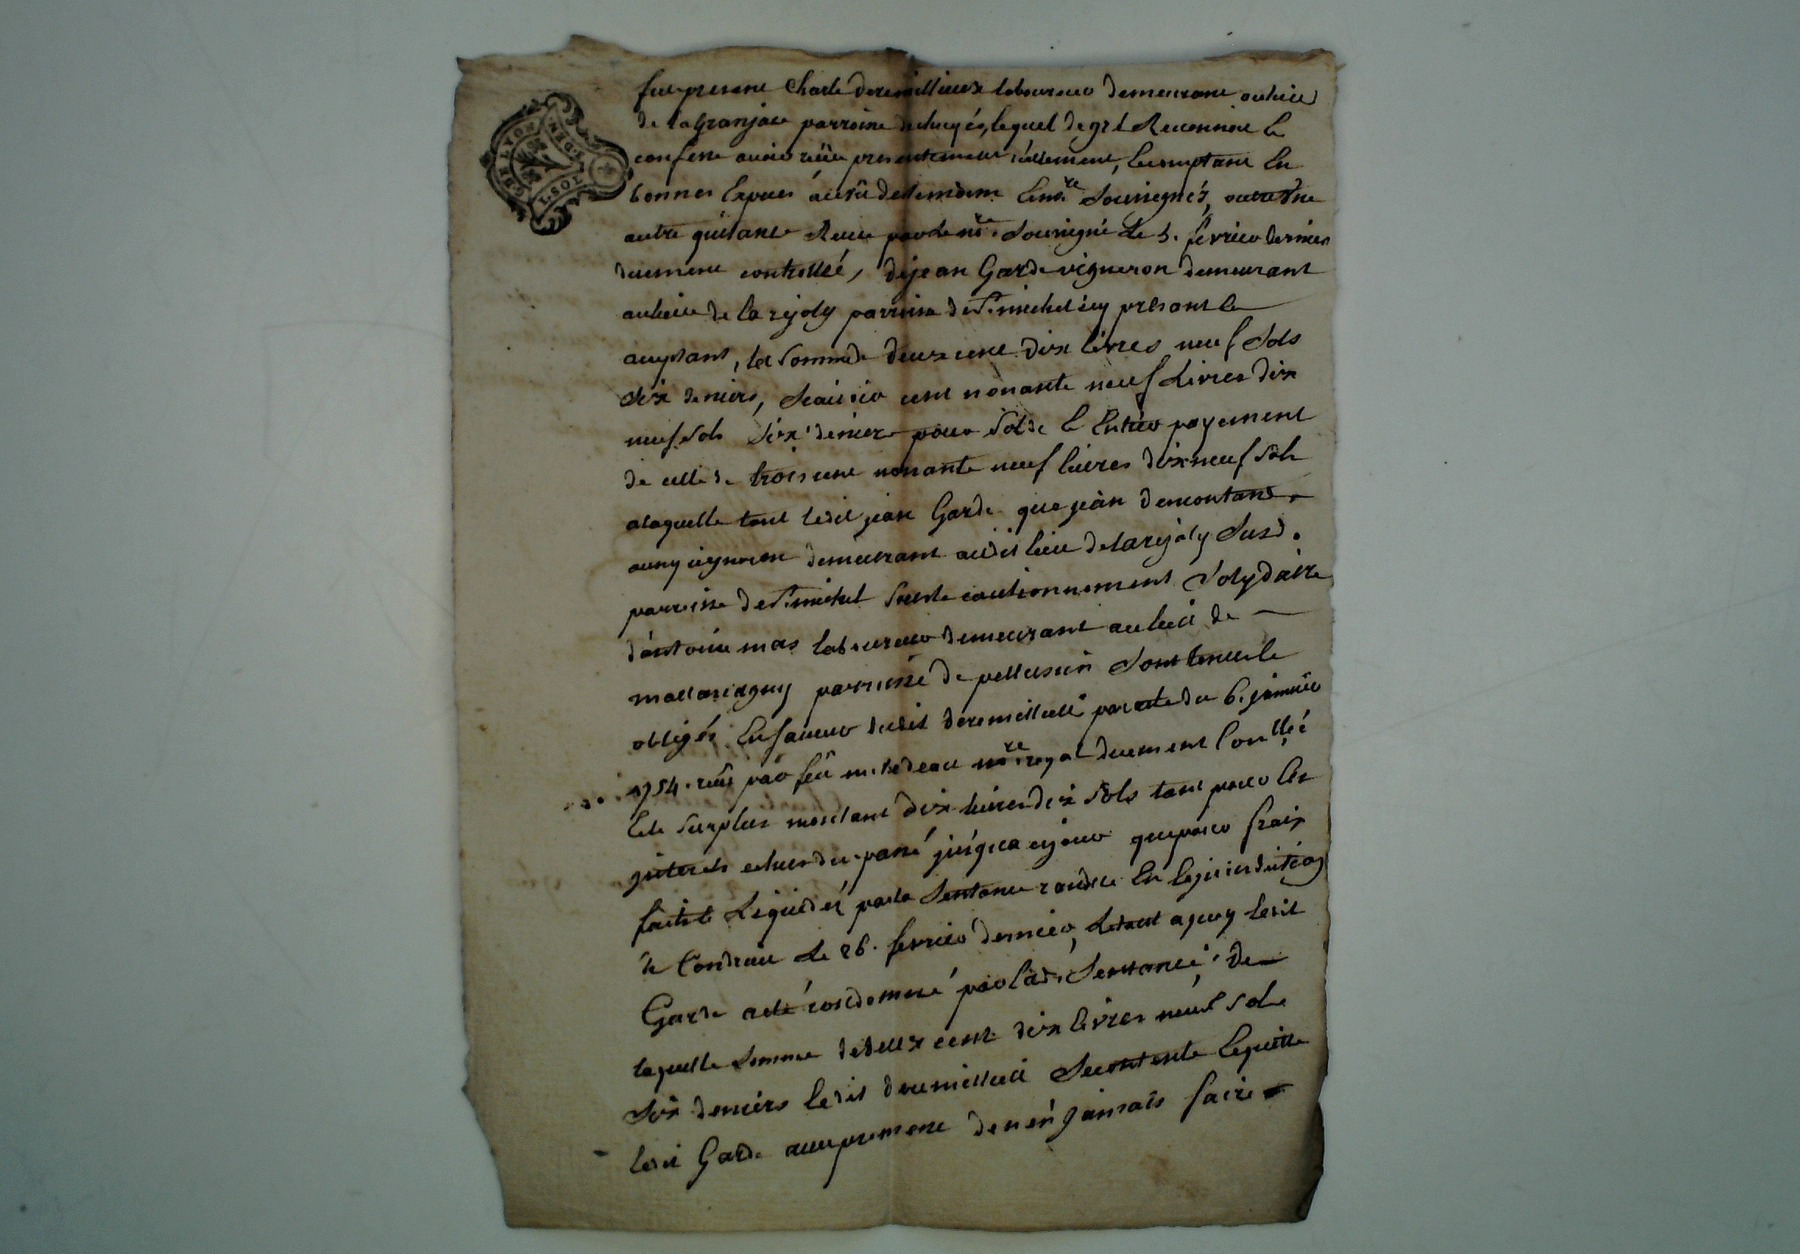 GEN. DE LYON
1. SOL
fut present Charle deremillieux laboureur demeurant au lieu
de la Granjasse parroisse de Luppé, lequel de gré Reconnoit &
confesse avoir reçû presentement réellement, & comptant En
bonnes Especes au vû des temoins & nre. soussignés, outre Une
autre quittance Reçue par le nre. soussigné Le 5. février dernier
duement controllée, de jean Garde vigneron demeurant
au lieu de la rejoly parroisse de St. michel icy présent &
acceptant, La somme de deux cent dix livres neuf sols
six deniers, sçavoir cent nonante neuf Livres dix
neuf sols six deniers pour solde & Entier payement
de celle de trois cent nonante neuf livres dix neuf sols
a laquelle tant ledit jean Garde que jean demontand
aussy vigneron demeurant audit lieu de la rejoly Susd.
parroisse de St. michel sous le cautionnement solydaire
d'antoine mas laboureur demeurant au lieu de
mallavagny parroisse de pellussin sont tenus &
obligés En faveur dudit deremillieu par acte du 6. janvier
1754. reçu par feu me. nre. royal duement Conllé
& le surplus montant dix livres dix sols tant pour les
jnterets echus du passé jusqu'a ce jour que pour frais
faits & Liquidés par la Sentence rendue En la jurisdiction
de Condrieu Le 26. fevrier dernier, & tout a quoy ledit
Garde a eté condamné par lad. Sentance, de
laquelle Somme de deux cent dix livres neuf sols
six deniers ledit deremillieu se contente & quitte
ledit Garde avec promesse de n'en jamais faire